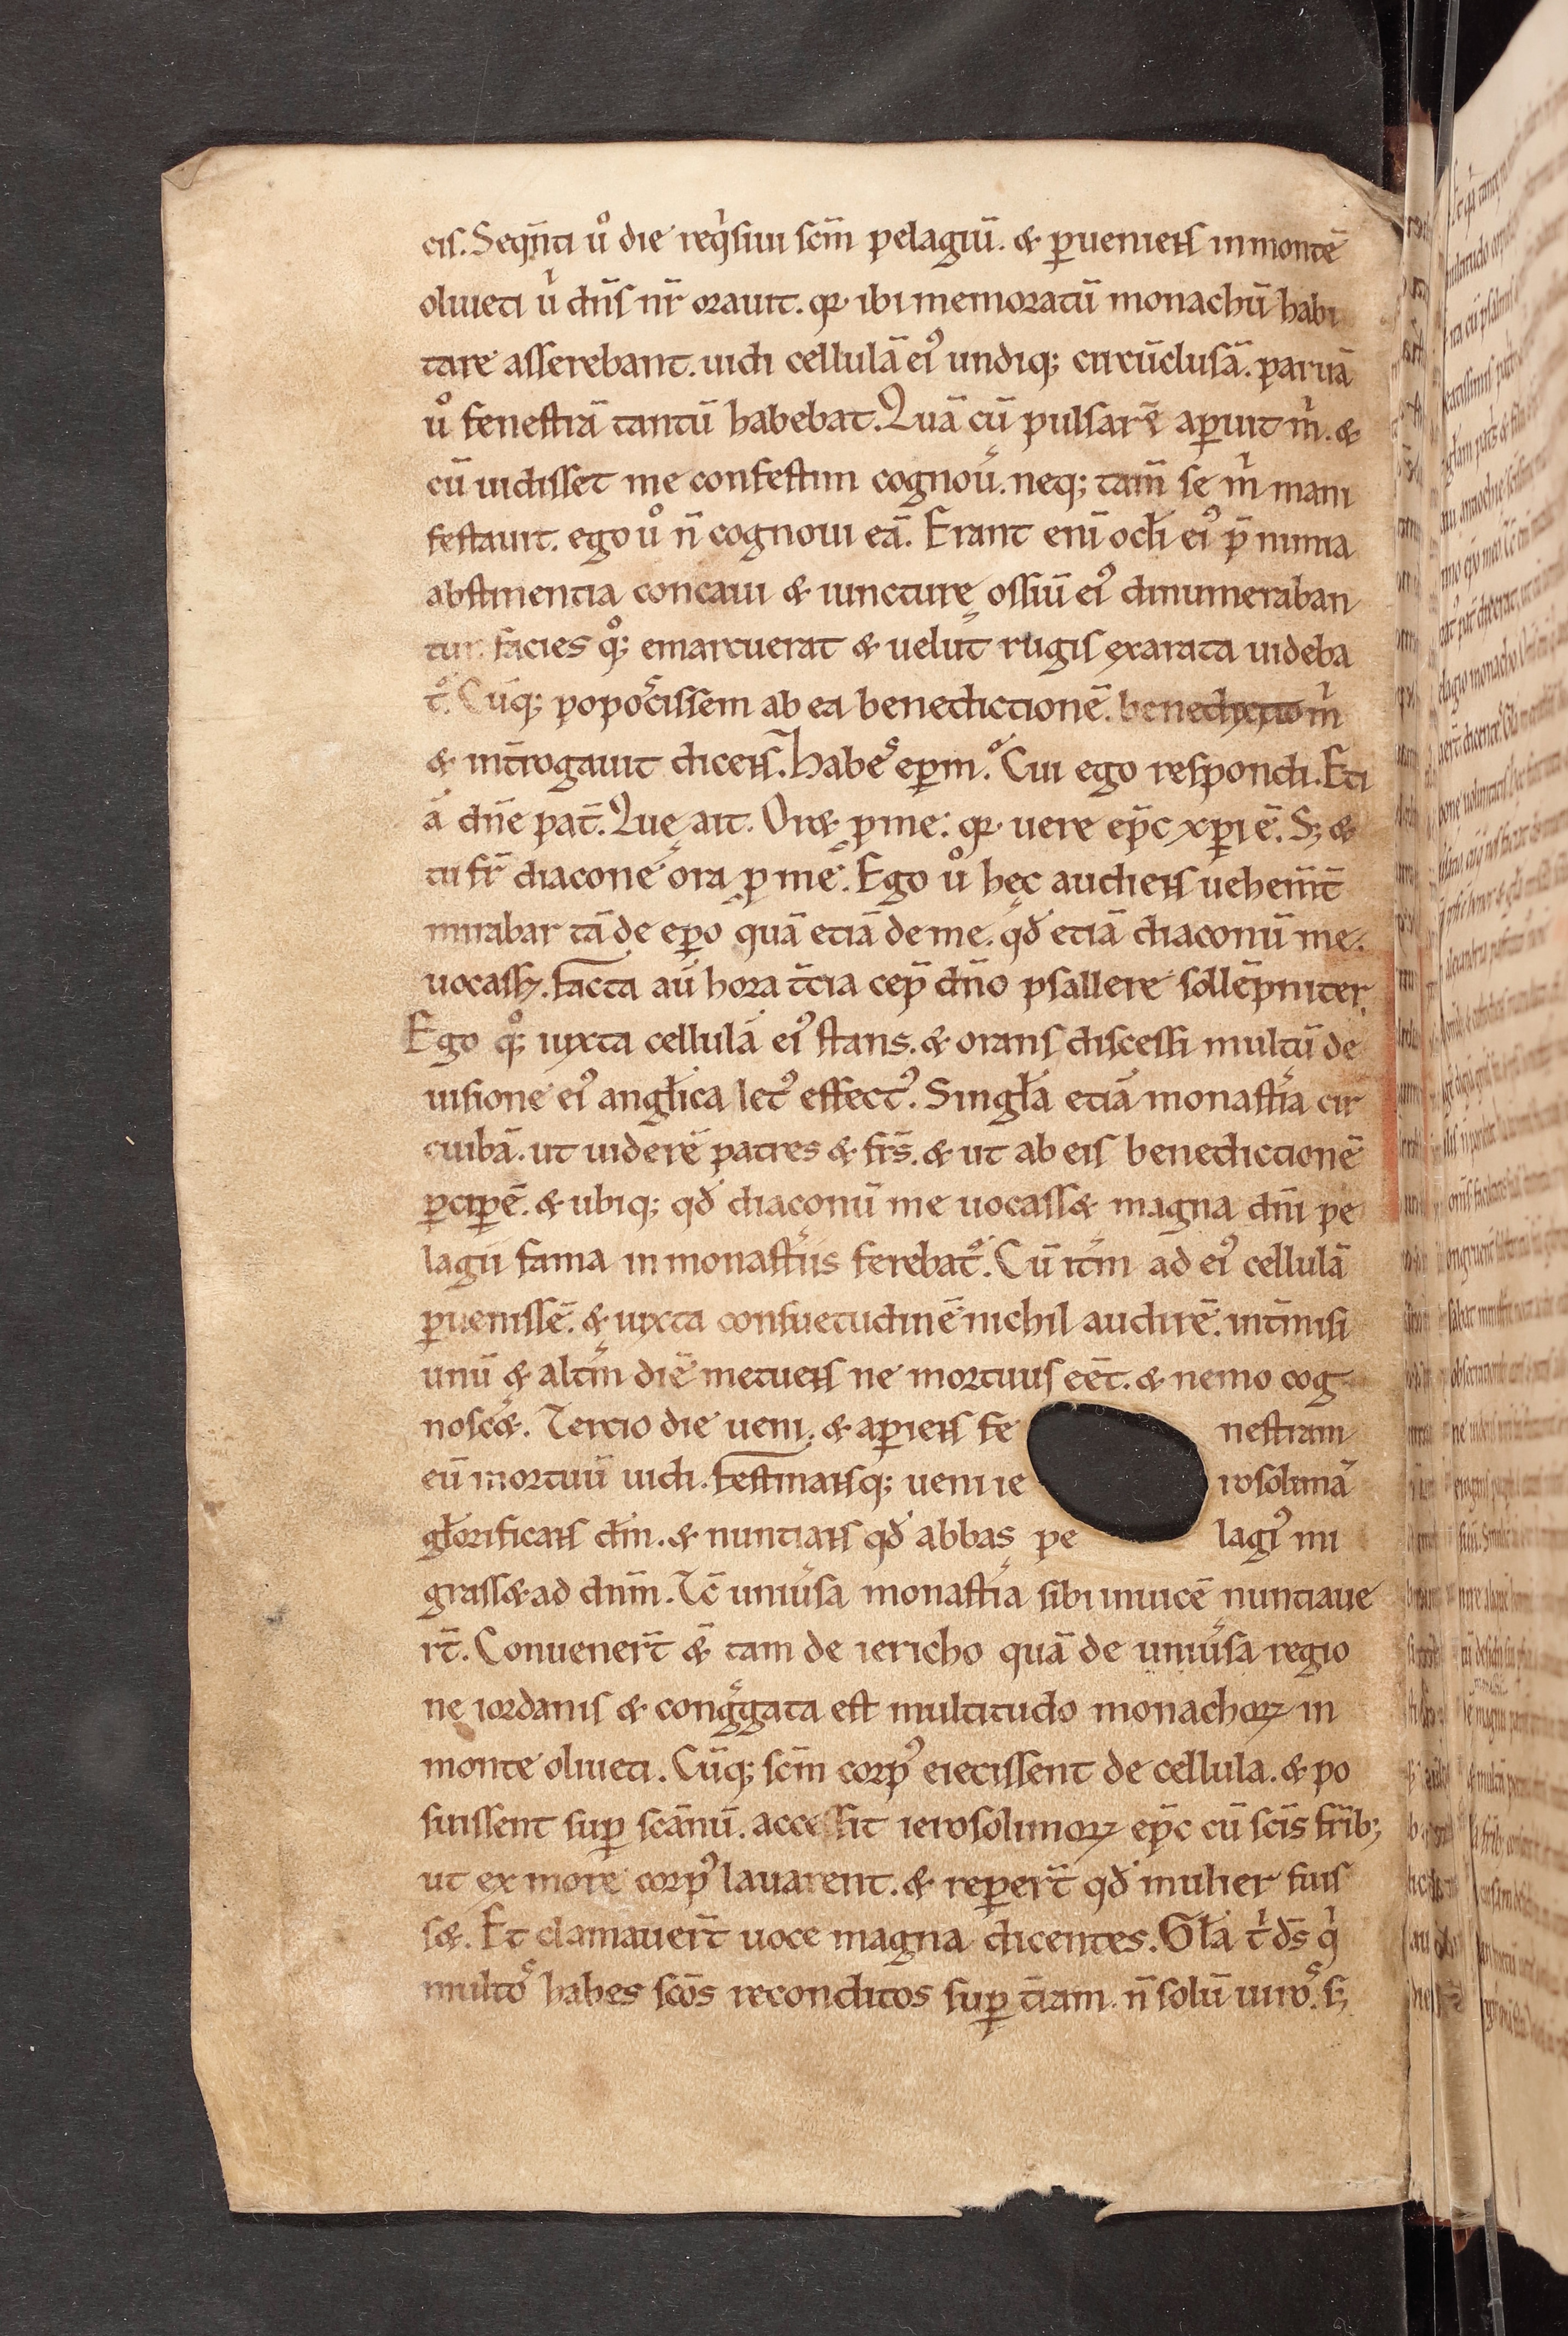 cis. Seqn̄ti uͦ die req̇siui scm̄ pelagiū. & ꝑueniens in montē
oliueti u̇ dn̄s nr̄ orauit. qꝛ ibi memoratū monachū habi
tare asserebant. uidi cellulā eiꝰ undiq; circūclusā. paruā
uͦ fenestrā tantū habebat. Quā cū pulsarē aꝑuit ṁ. &
cū uidisset me confestim cognou͛. neq; tam̄ se ṁ mani
festauit. ego uͦ n̄ cognoui eā. Erant enī oc̄li eiꝰ p̄ nimia
abstinentia concaui & iuncturę ossiū eiꝰ dinumeraban
tur. facies qͦ; emarcuerat & uelut rugis exarata uideba
t᷑. Cūq; popoꝯ͛cissem ab ea benedictionē. benedyxit ṁ
& int̄rogauit dicens. habeˢ eꝑm. Cui ego respondi. Eti
ā dn̄e pat̄. Quę ait. Or& ꝑ me: qꝛ uere ep̄c xp̄i ē. S; &
tu fr̄ diacone ora ꝓ me. Ego uͦ hęc audiens uehem̄t̄
mirabar tā de eꝑo quā etiā de me. qđ etiā diaconū me
uocass;. facta aū hora t̄cia cep̄ dn̄o psallere sollēpniter
Ego qͦ; iuxta cellulā eiꝰ stans. & orans discessi multū de
uisione eiꝰ angl̄ica letꝰ effectꝰ. Singl̄a etiā monast͛ia cir
cuibā. ut uiderē patres & fr̄s. & ut ab eis benedictionē
ꝑciꝑē. & ubiq; qđ diaconū me uocass& magna dn̄i pe
lagii fama in monast͛iis ferebat᷑. Cū it̄m ad eiꝰ cellulā
ꝑuenissē. & iuxta consuetudinē nichil audirē. int̄misi
unū & alt̄m diē metuens ne mortuus eēt. & nemo cog
nosc&. Tercio die ueni. & aꝑiens fe nestram
eū mortuū uidi. festinansq; ueni ie rosolimā
gl̄orificans dm̄. & nuntians qđ abbas pe lagiꝰ mi
grass& ad dn̄m. Tc̄ uniu͛sa monast͛ia sibi inuicē nuntiaue
rt̄. Conuenert̄ &̄ tam de iericho quā de uniu͛sa regio
ne iordanis & cong͛gata est multitudo monachoꝝ in
monte oliueti. Cūq; scm̄ corpꝰ eiecissent de cellula. & po
suissent suꝑ scānū. accessit ierosolimoꝝ ep̄c cū scīs fr̄ib;
ut ex more corpꝰ lauarent. & reꝑert̄ qđ mulier fuis
s&. Et clamauert̄ uoce magna dicentes. Gl̄a t̊ ds̄ q̇
multoˢ habes scōs reconditos suꝑ t̄ram. n̄ solū uiroˢ. s;